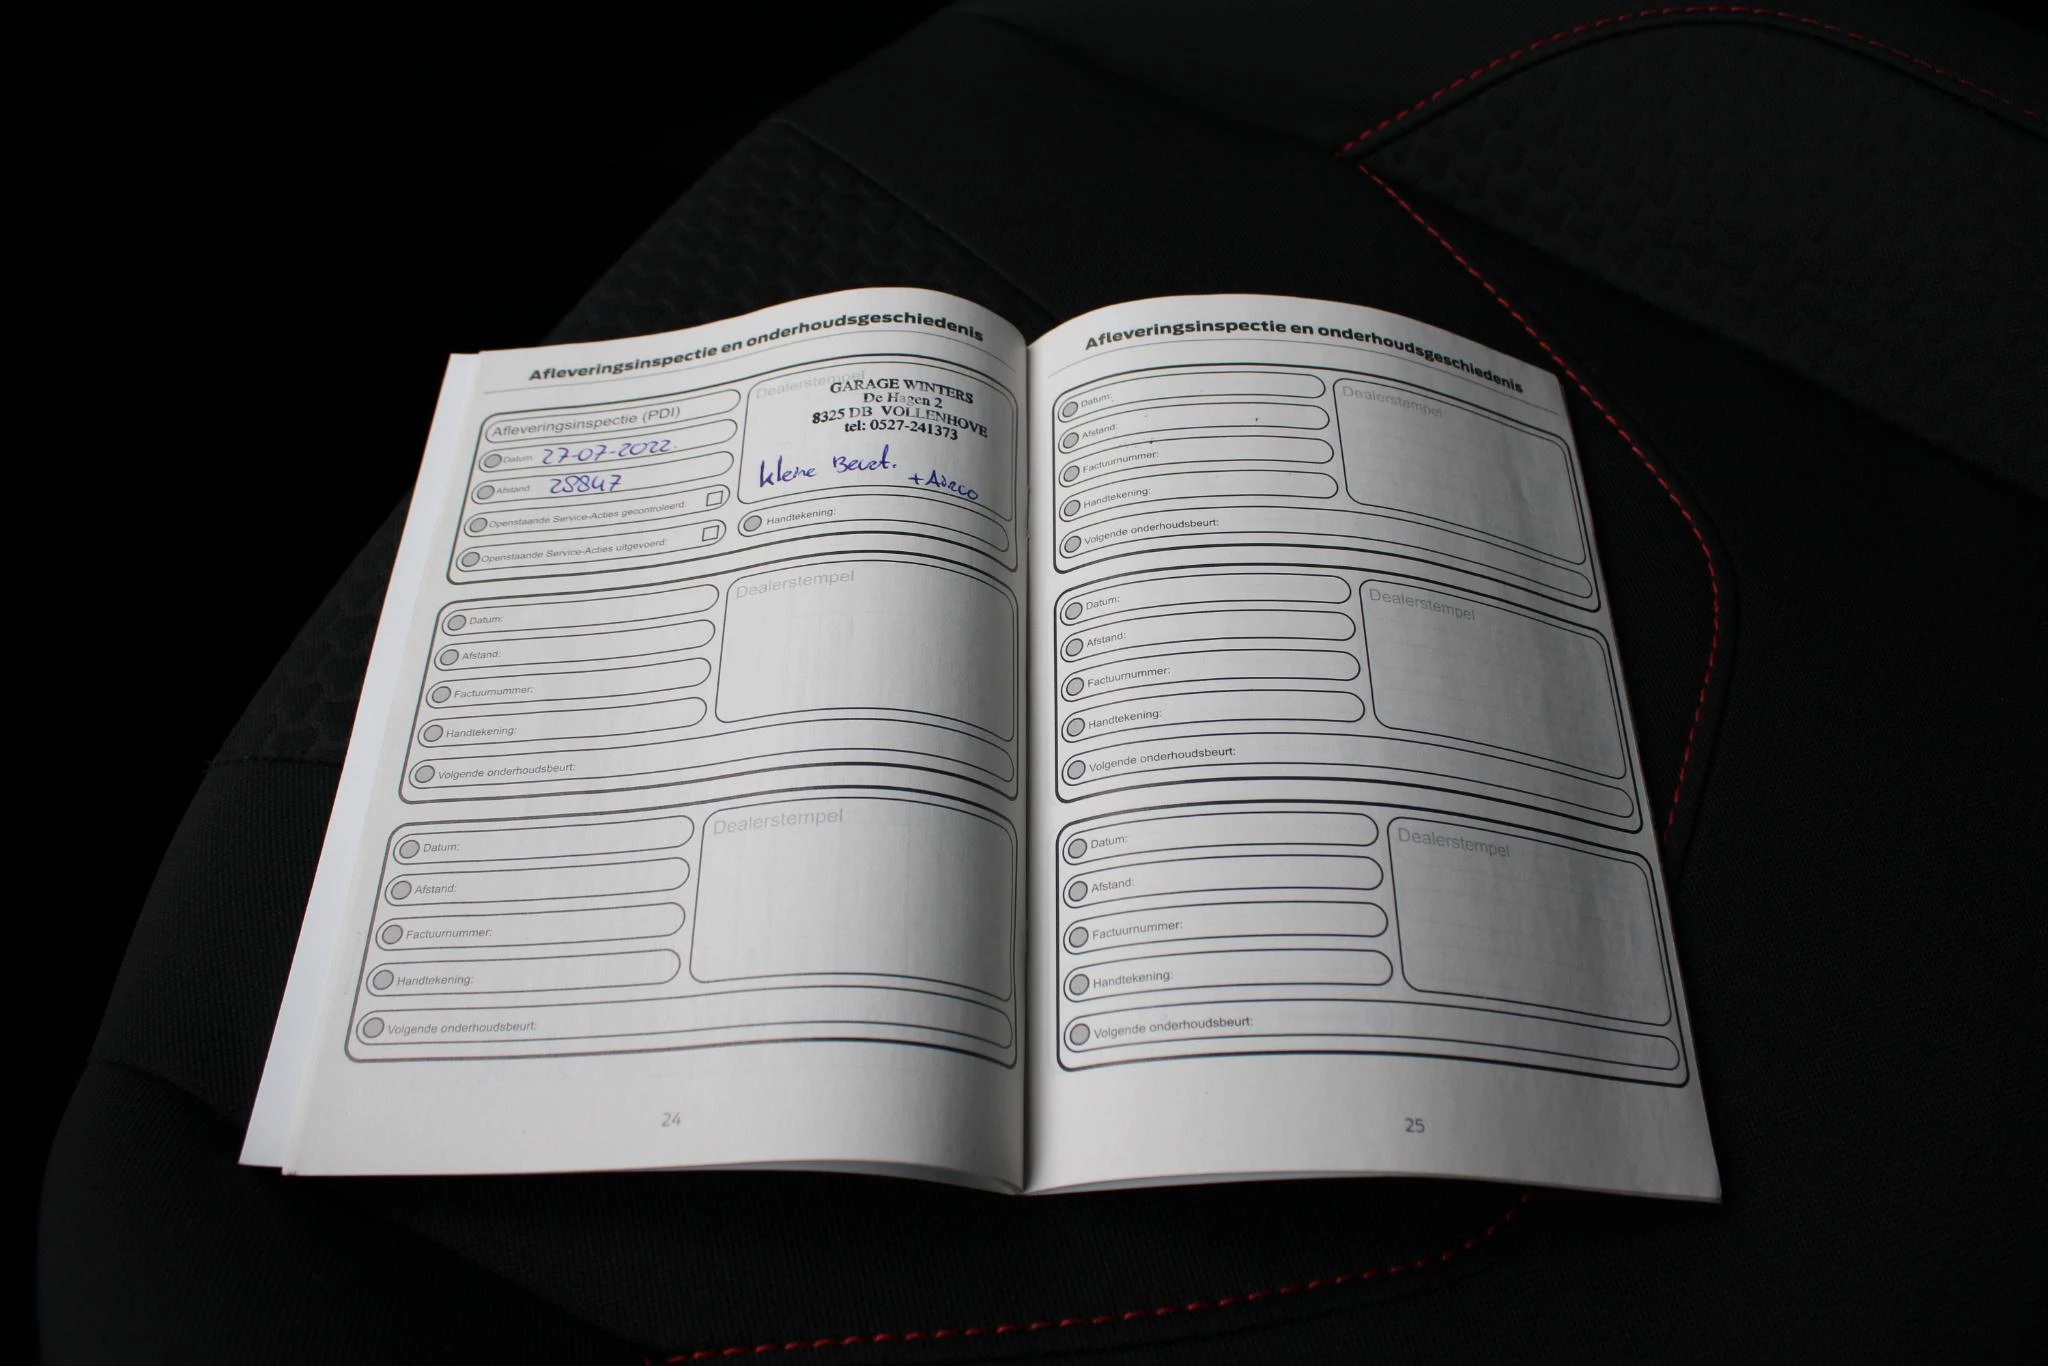 Afleveringsinspectie en onderhoudsgeschiedenis
Afleveringsinspectie (PDI)
Datum: 27-07-2022.
Afstand: 28847
Openstaande Service-Acties gecontroleerd:
Openstaande Service-Acties uitgevoerd:
Dealerstempel
GARAGE WINTERS
De Hagen 2
8325 DB VOLLENHOVE
tel: 0527-241373
kleine Beurt.
+ Airco
Handtekening:
Datum:
Afstand:
Factuurnummer:
Handtekening:
Volgende onderhoudsbeurt:
Dealerstempel
Datum:
Afstand:
Factuurnummer:
Handtekening:
Volgende onderhoudsbeurt:
Dealerstempel
24
Afleveringsinspectie en onderhoudsgeschiedenis
Datum:
Afstand:
Factuurnummer:
Handtekening:
Volgende onderhoudsbeurt:
Dealerstempel
Datum:
Afstand:
Factuurnummer:
Handtekening:
Volgende onderhoudsbeurt:
Dealerstempel
Datum:
Afstand:
Factuurnummer:
Handtekening:
Volgende onderhoudsbeurt:
Dealerstempel
25